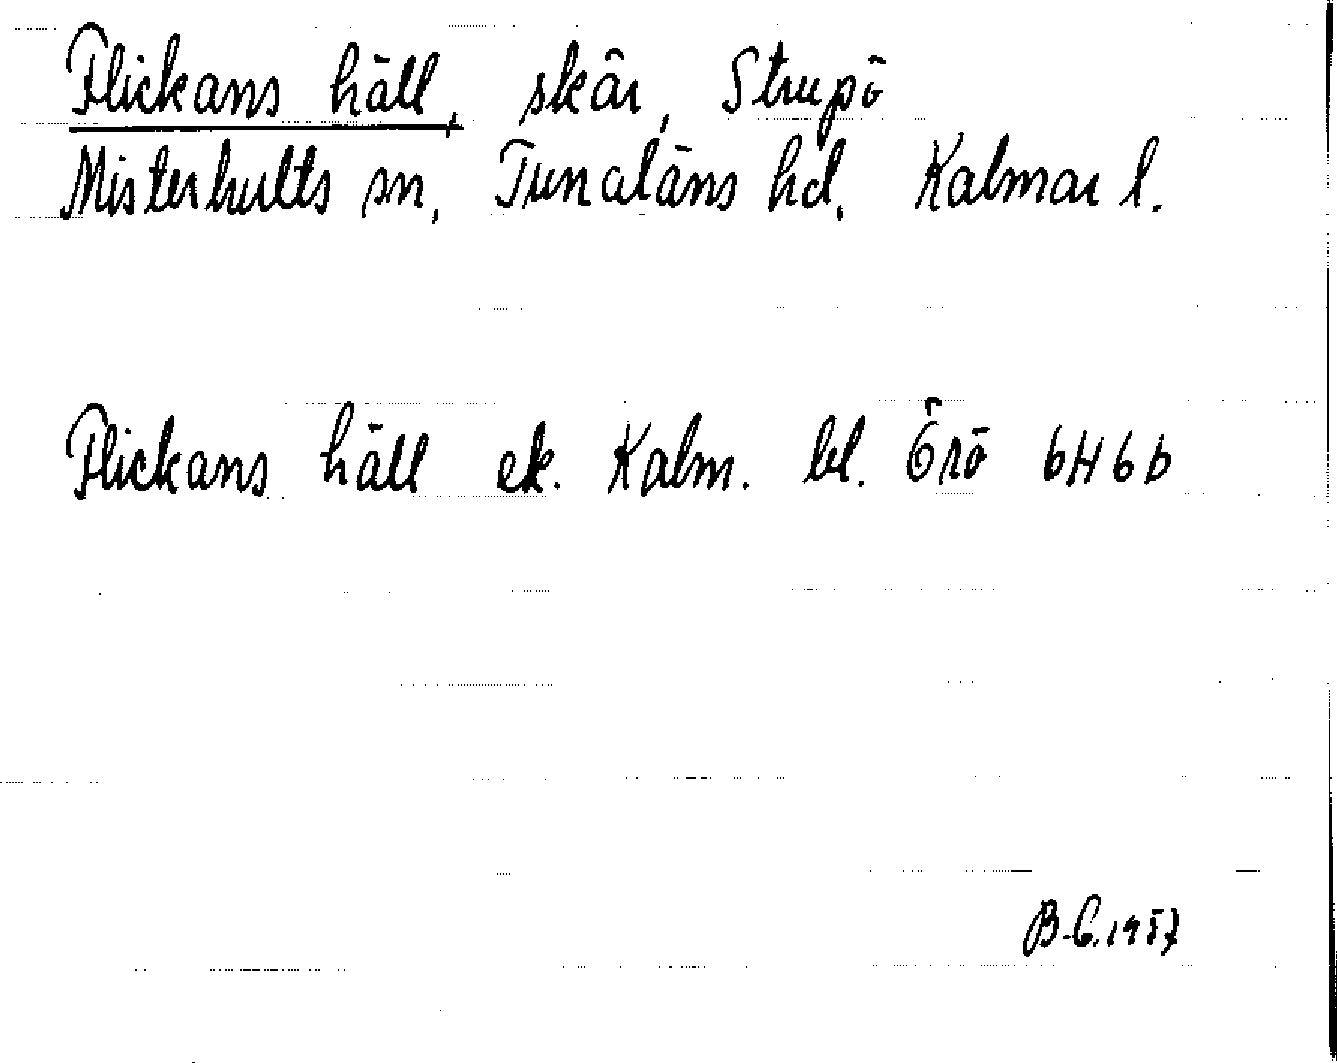 Flickans häll, skär, Strupö
Misterhults sn, Tunaläns hd, Kalmar l.
Flickans häll ek. Kalm. bl. Örö 6H6b
B-C. 1957